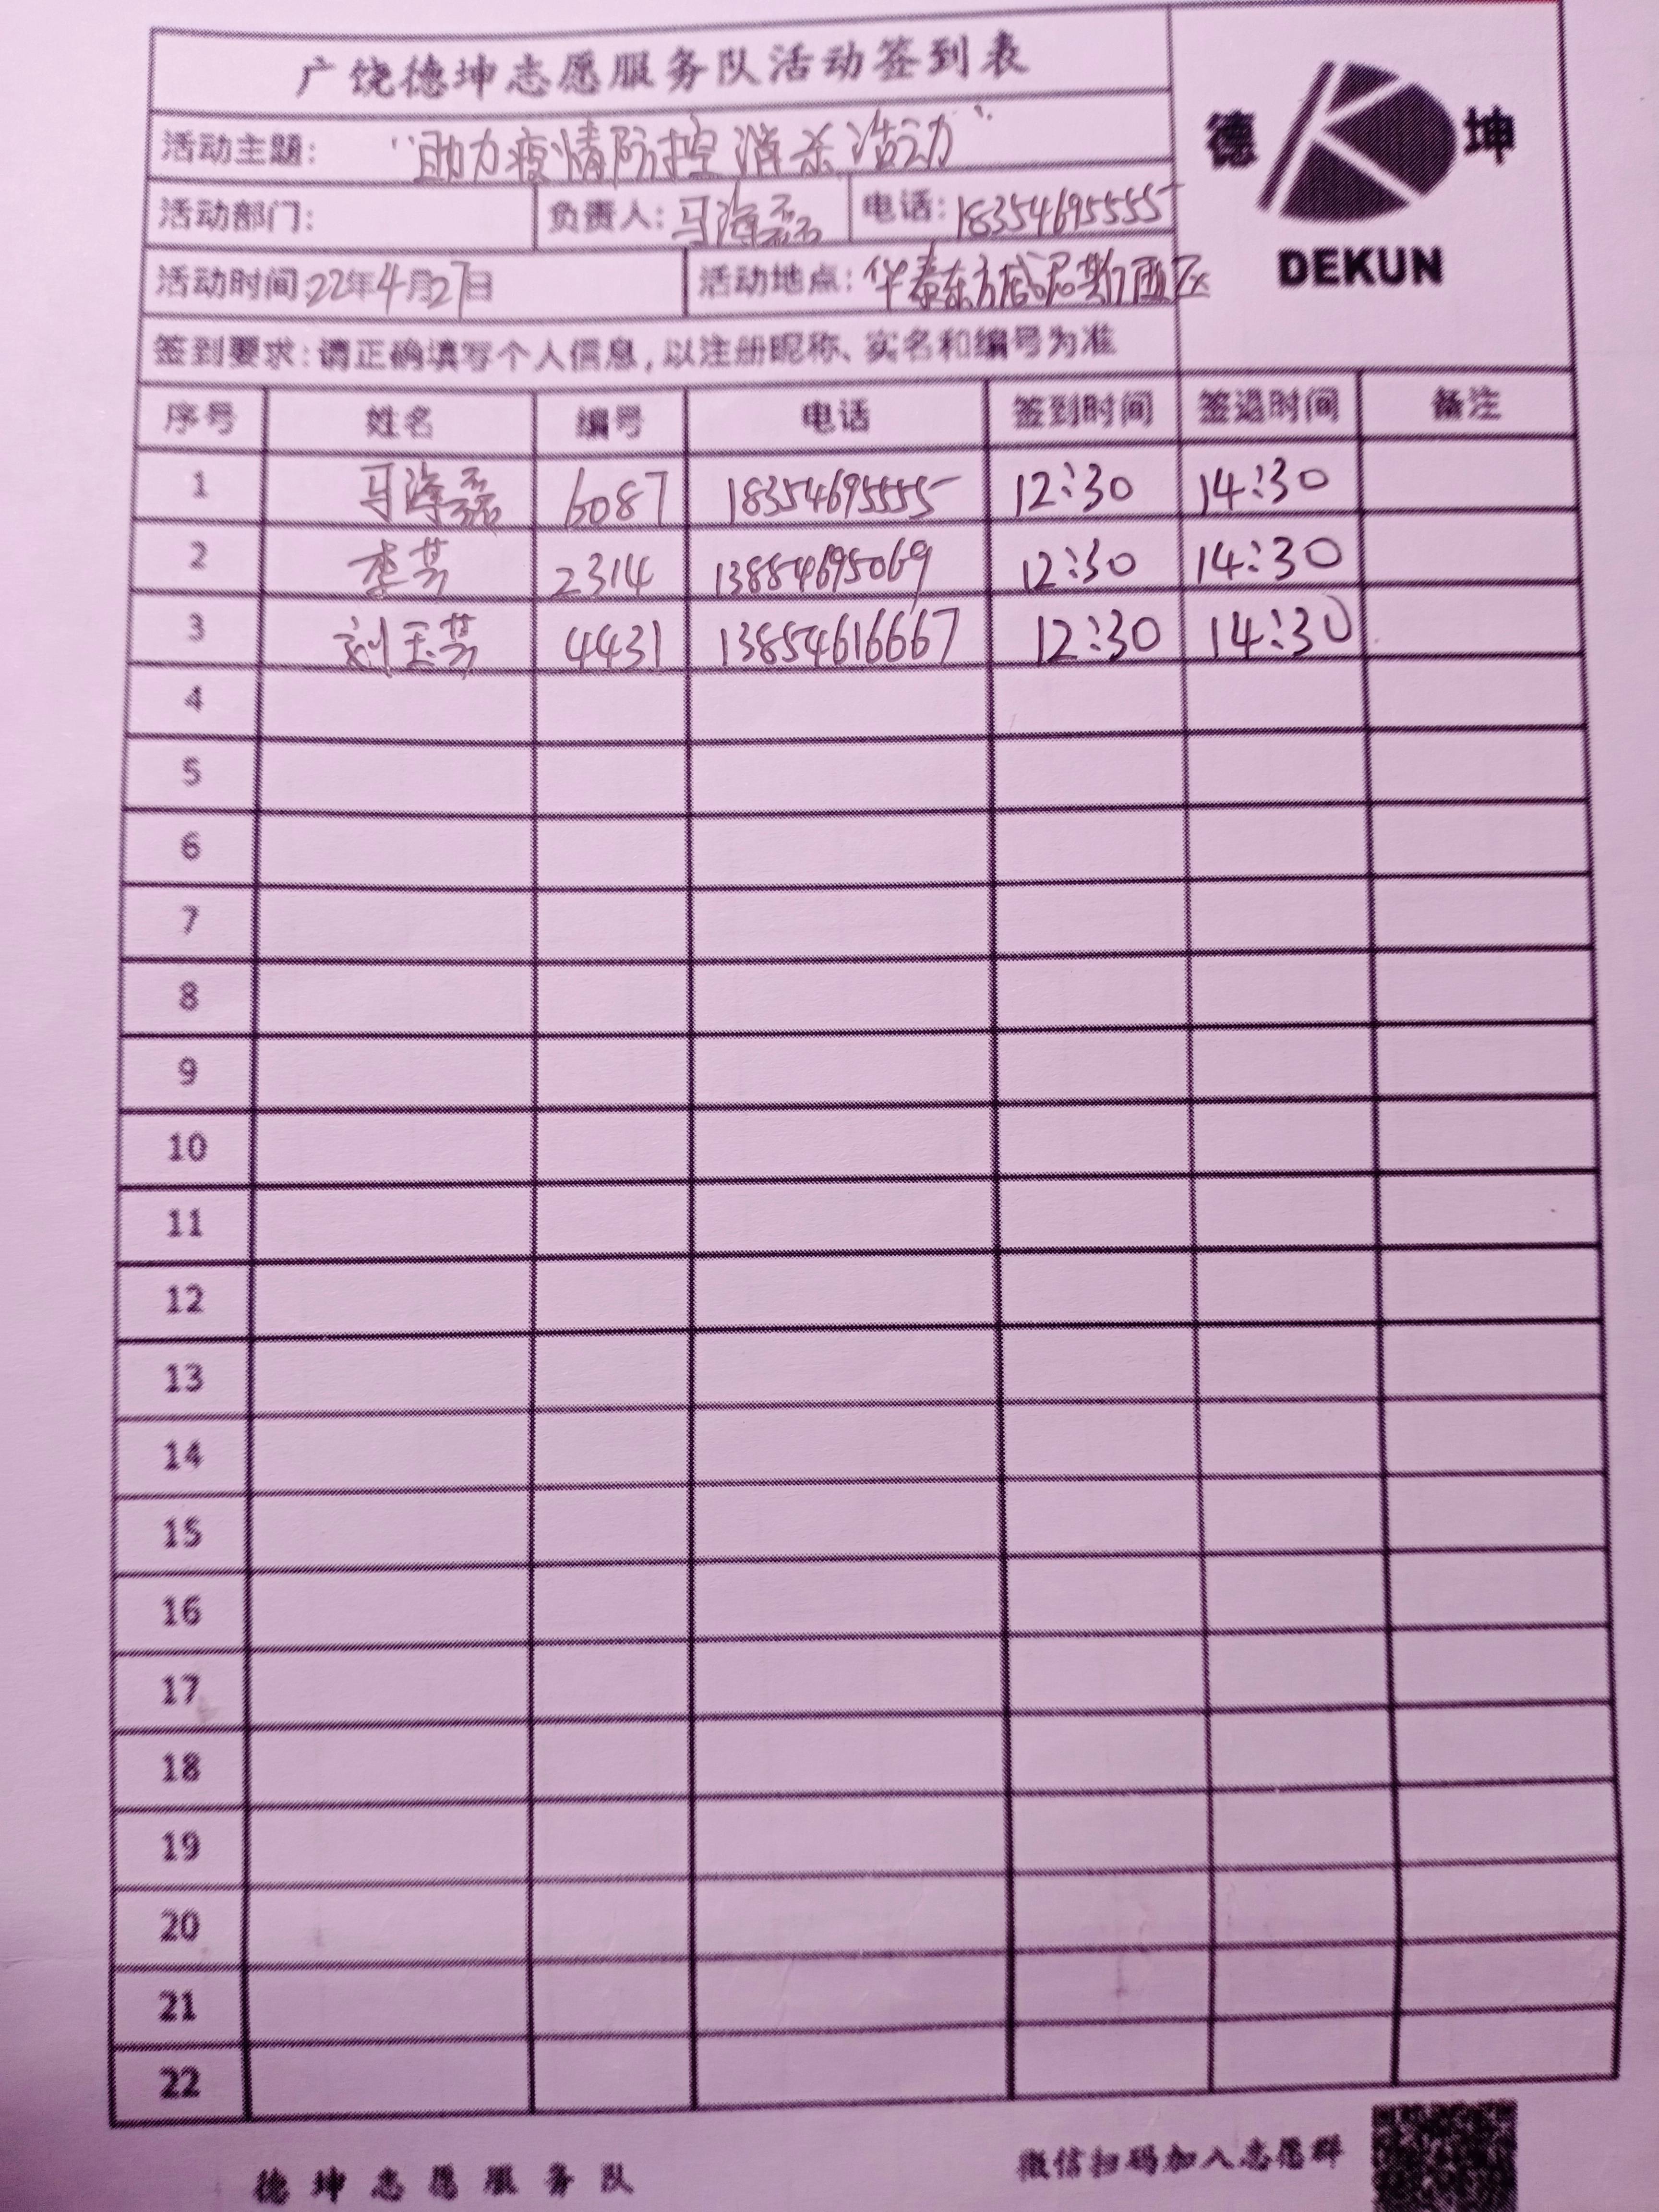 广饶德坤志愿服务队活动签到表
德 坤
DEKUN
活动主题: “助力疫情防控消杀活动”
活动部门: 负责人: 马海磊 电话: 18354695555
活动时间: 22年4月27日 活动地点: 华泰东方威尼斯西区
签到要求: 请正确填写个人信息, 以注册昵称、实名和编号为准
序号 姓名 编号 电话 签到时间 签退时间 备注
1 马海磊 6087 18354695555 12:30 14:30
2 李芳 2314 13884695069 12:30 14:30
3 刘玉芳 4431 13854616667 12:30 14:30
4
5
6
7
8
9
10
11
12
13
14
15
16
17
18
19
20
21
22
德坤志愿服务队 微信扫码加入志愿群